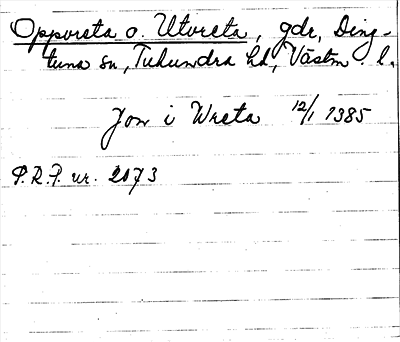 Oppvreta o. Utvreta, gdr, Ding-
tuna sn, Tuhundra hd, Västm. l.
Jon i Wreta 12/1 1385
P.R.P. nr. 2073